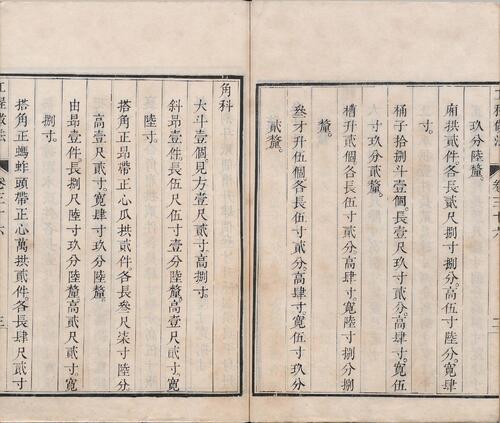 玖分陸釐。
廂拱貳件各長貳尺捌寸捌分。高伍寸陸分。寬肆
寸。
桶子拾捌斗壹個。長壹尺玖寸貳分。高肆寸。寬伍
寸玖分貳釐。
槽升貳個各長伍寸貳分。高肆寸。寬陸寸捌分捌
釐。
叄才升伍個各長伍寸貳分。高肆寸。寬伍寸玖分
貳釐。
角科
大斗壹個見方壹尺貳寸。高捌寸。
斜昂壹件長伍尺伍寸壹分陸釐高壹尺貳寸。寬
陸寸。
搭角正昂帶正心瓜拱貳件各長叄尺柒寸陸分
高壹尺貳寸。寬肆寸玖分陸釐。
由昂壹件長捌尺陸寸玖分陸釐高貳尺貳寸。寬
捌寸。
搭角正螞蚱頭帶正心萬拱貳件各長肆尺貳寸
卷三十六
三